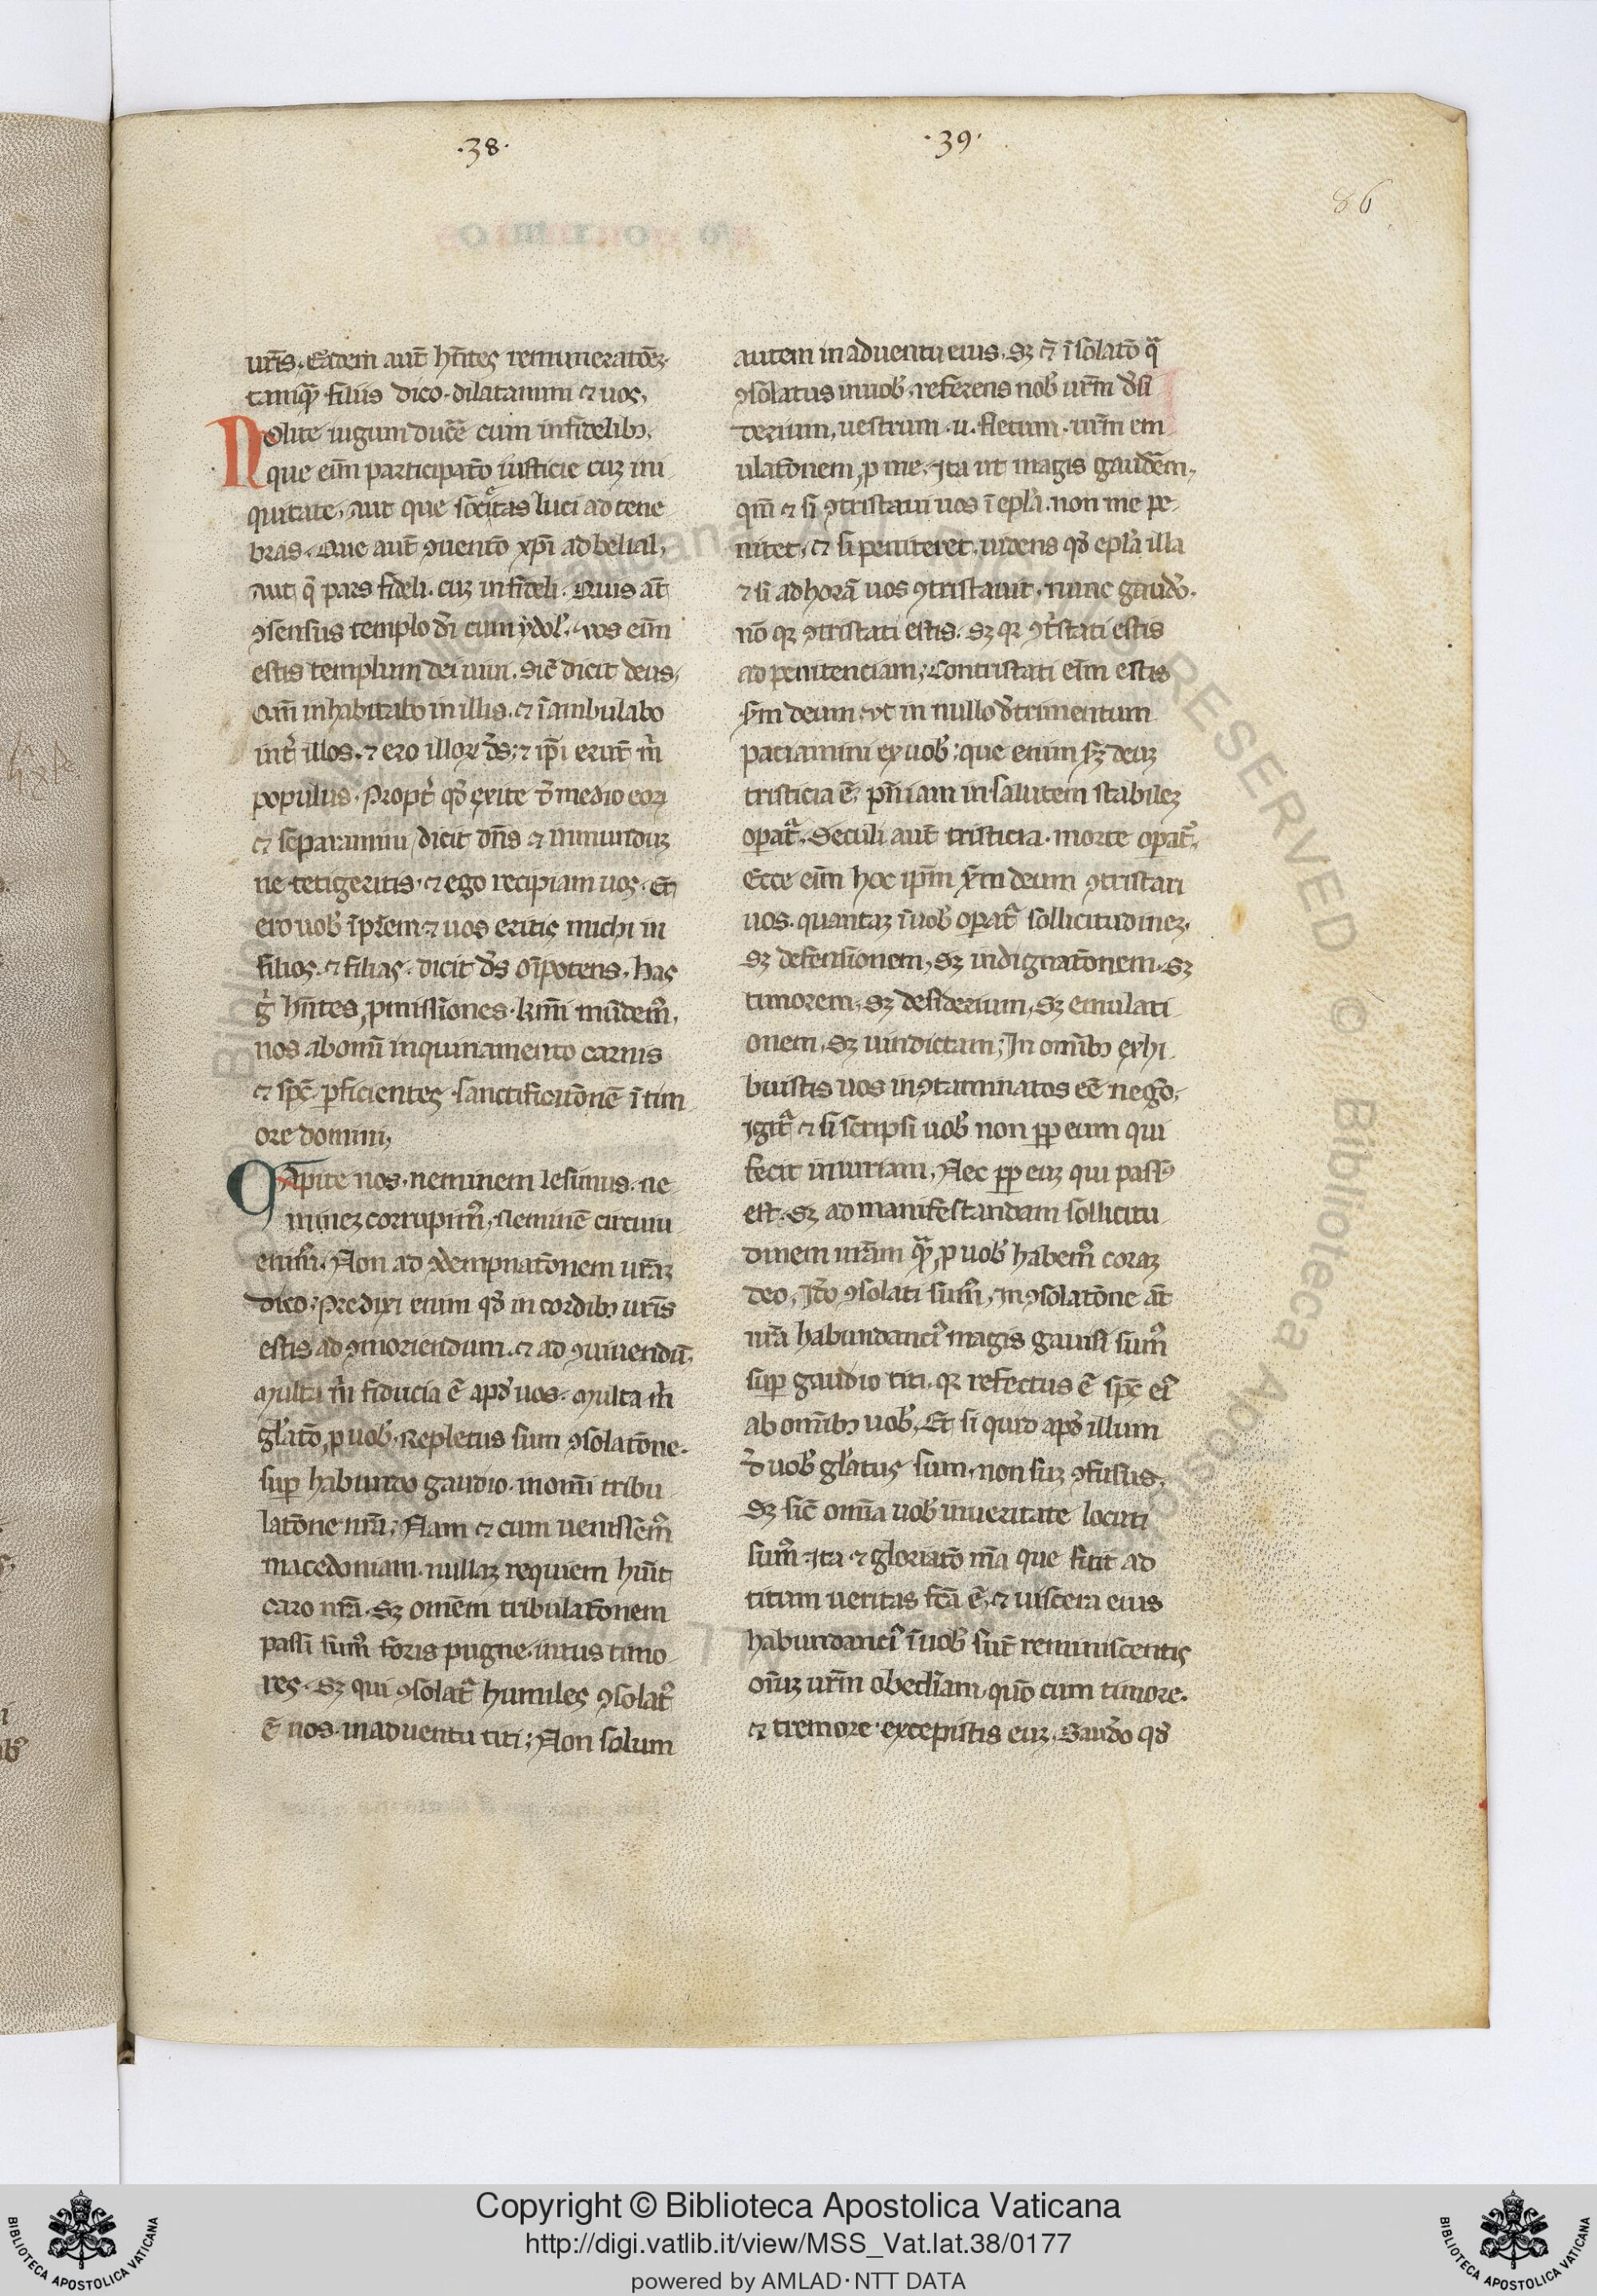 .38.
.39.
86
ur̄is. Eādem aut̄ hn̄tes remuneratōeꝫ.
tamqᷓ filiis dico. dilatamini ⁊ uos.
Nolite iugum ducēr cum infidelibꝫ.
que eī̄m participatō iusticie cuꝫ ini
quitate. aut que socı̄etas luci ad tene
bras. Que aut̄ ꝯuentō xp̄i ad belial.
aut q̄ pars fideli. cuꝫ infideli. Quis āt
ꝯsensus templo dī cum ydol̕. uos eī̄m
estis templum dei uiui. sic̄ dicit deus.
Qm̄ inhabitabo in illis. ⁊ īambulabo
int̕ illos. ⁊ ero illoꝝ d̄s. ⁊ ip̄i erūt m̄
populus. Propt̕ qd̕ exite d̄ medio eoꝝ
⁊ separamini dicit dn̄s ⁊ inmunduꝫ
ne tetigeritis. ⁊ ego recipiam uos. Et
ero uob̕ īpr̄em ⁊ uos eritis michi in
filios. ⁊ filias. dicit d̄s om̄ipotens. has
g̕ hn̄tes ꝓmissiones. kmī mūdem᷒.
nos ab omī inquinamento carnis
⁊ sp̄c ꝑficientes sanctificatōnē ī tim
ore domini.
Capite nos. neminem lesimus. ne
mineꝫ corrupim᷒. neminē circuu
enim᷒. Non ad ꝯdempnatōnem ur̄aꝫ
dico. Predixi enim qd̕ in cordibꝫ ur̄is
estis ad ꝯmoriendum. ⁊ ad ꝯuiuendū.
Multa m̄ fiducia ē apd̕ uos. multa m̄
gl̕atō ꝓ uob̕. Repletus sum ꝯsolatōne.
suꝑ habundo gaudio. in omī tribu
latōne nr̄a. Nam ⁊ cum uenissēm᷒
macedoniam. nullaꝫ requiem hūıt
caro nr̄a. Sꝫ omēm tribulatōnem
passi sum᷒ foris pugne. intus timo
res. Sꝫ qui ꝯsolat᷒ humiles ꝯsolat᷒
ē nos. in aduentu titi; Non solum
autem in aduentu eius. Sꝫ ⁊ ī solatō qᷓ
ꝯsolatus in uob̕. referens nob̕ ur̄m d̄si
derium. uestrum .u. fletum. ur̄m em
ulatōnem ꝓ me. Ita ut magis gaudēm.
qm̄ ⁊ si ꝯtristaui uos ī epl̄a. non me pe
nitet. ⁊ si peniteret. uidens qd̕ epl̄a illa
⁊ si ad horā uos ꝯtristauit. nunc gaudō.
nō qꝛ ꝯtristati estis. sꝫ qꝛ ꝯt̕stati estis
ad penitenciam; Contristati eī̄m estis
s̕m deum. ut in nullo d̄trimentum
paciamini ex uob̕. que enim s̕ꝫ deuꝫ
tristicia ē. pn̄iam in salutem stabileꝫ
oꝑat᷒. Seculi aut̄ tristicia. morte oꝑat᷒.
Ecce eī̄m hoc ip̄m s̕m deum ꝯtristari
uos. quantaꝫ ī uob̕ oꝑat᷒ sollicitudineꝫ.
Sꝫ defensionem, Sꝫ indignatōnem. Sꝫ
timorem. Sꝫ desiderium, Sꝫ emulati
onem, Sꝫ uindictam; In omībꝫ exhi
buistis uos inꝯtaminatos eē̄ negō.
Igit᷒ ⁊ si scripsi uob̕ non ꝓp eum qui
fecit iniuriam. Nec ꝓp euꝫ qui pass᷒
est. Sꝫ ad manifestandam sollicitu
dinem nr̄am qᷓꝫ ꝓ uob̕ habem᷒ coraꝫ
deo. Id̕o ꝯsolati sum᷒. In ꝯsolatōne āt
nr̄a habundanci᷒ magis gauisi sum᷒
suꝑ gaudio titi. qꝛ refectus ē sp̄c ei᷒
ab omībꝫ uob̕. Et si quid apd̕ illum
d̄ uob̕ gl̕atus sum. non suꝫ ꝯfusus.
Sꝫ sic̄ omīa uob̕ in ueritate locuti
sum᷒. Ita ⁊ gloriatō nr̄a que fuit ad
titum ueritas fcā ē. ⁊ uiscera eius
habundanci᷒ ī uob̕ sūt reminiscentis
omīuꝫ ur̄m obedīam. quō cum timore.
⁊ tremore excepistis euꝫ. Gaudo qd̕
Copyright © Biblioteca Apostolica Vaticana
http://digi.vatlib.it/view/MSS_Vat.lat.38/0177
powered by AMLAD·NTT DATA